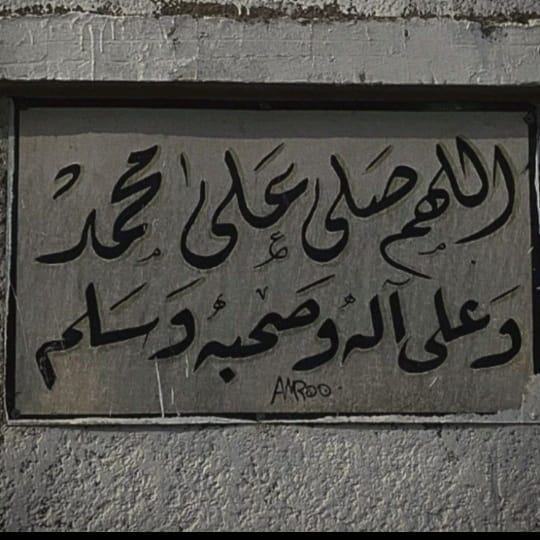 اللهم صلى على محمد
وعلى آله وصحبه وسلم
AMROO